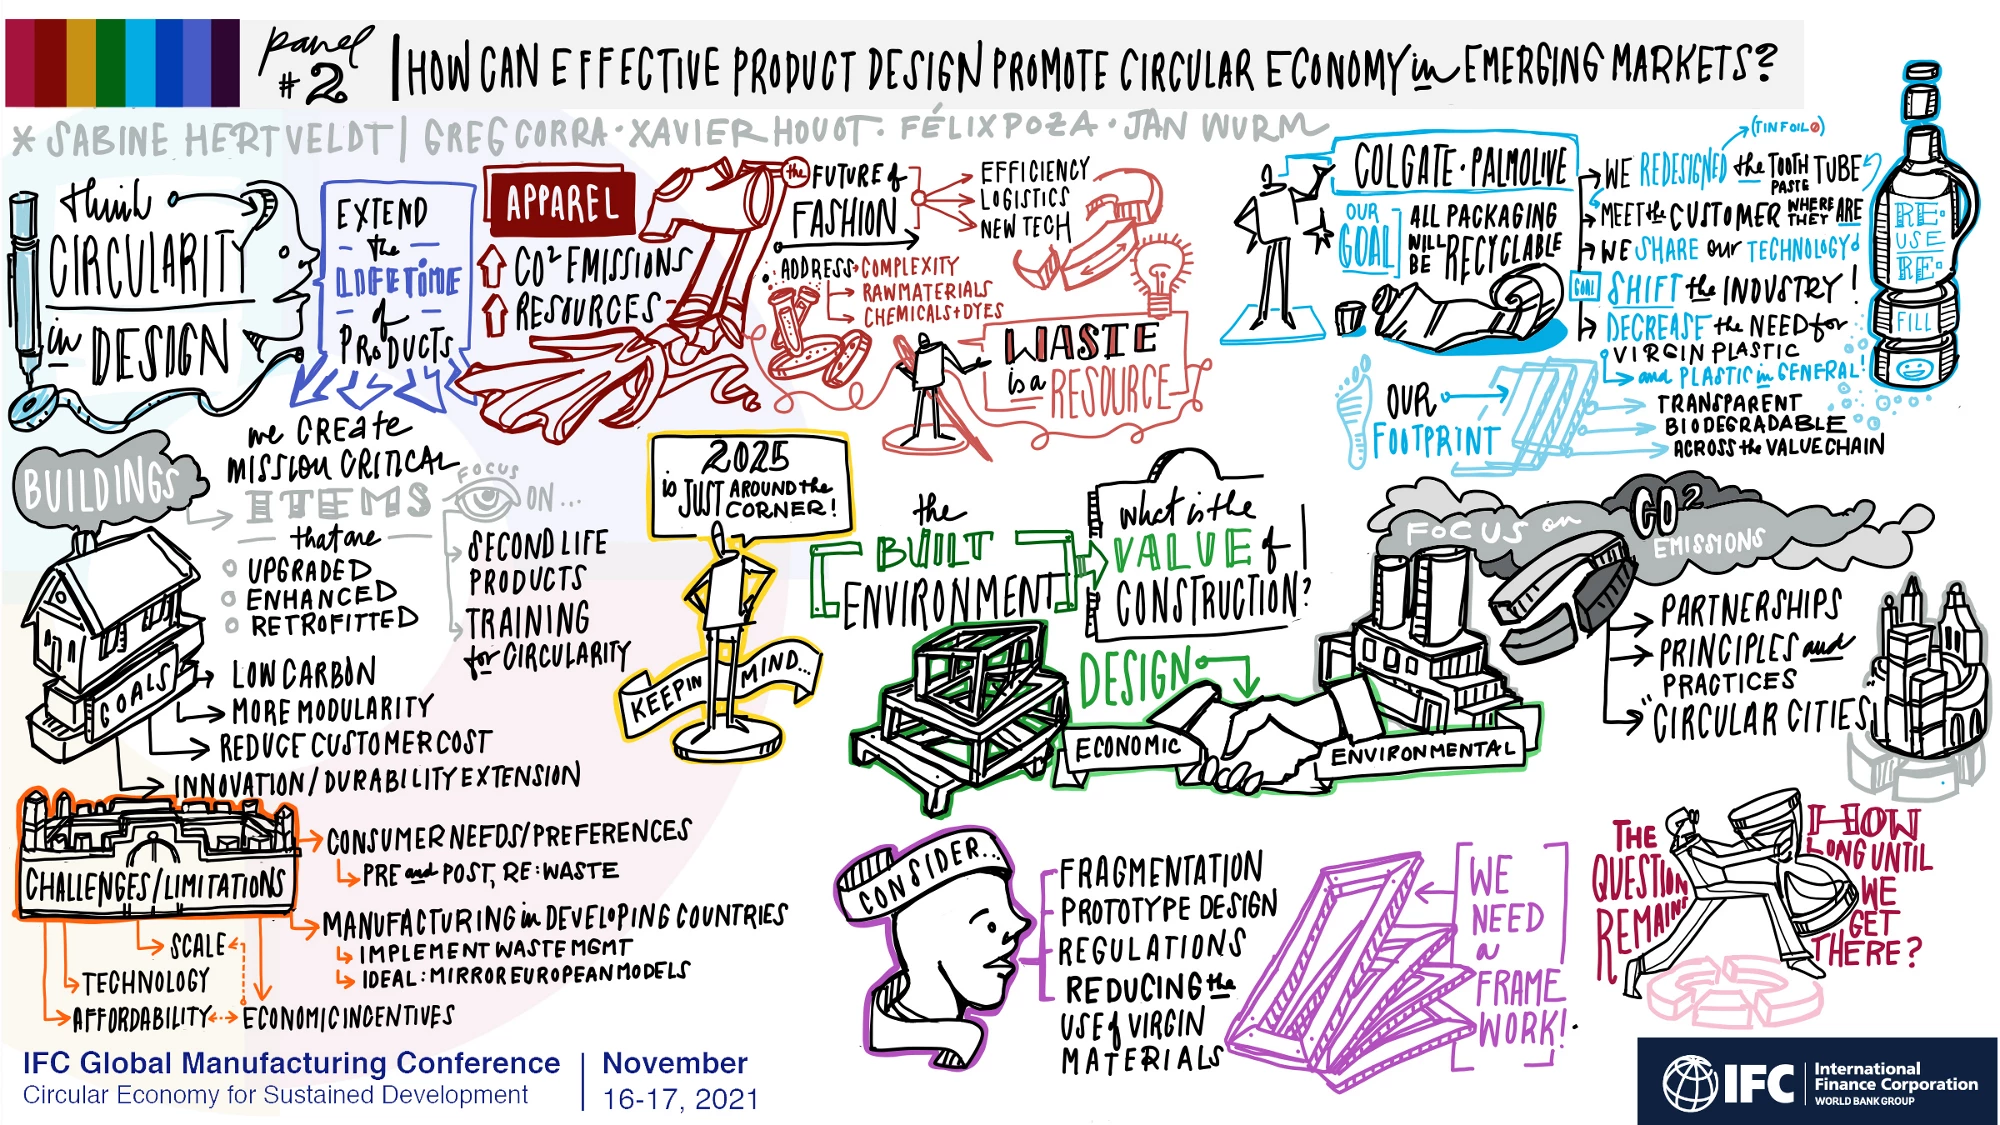 panel #2 | HOW CAN EFFECTIVE PRODUCT DESIGN PROMOTE CIRCULAR ECONOMY in EMERGING MARKETS?
* SABINE HERTVELDT | GREG CORRA · XAVIER HOUOT · FÉLIX POZA · JAN WURM
think
CIRCULARITY
in DESIGN
EXTEND
the
LIFETIME
of
PRODUCTS
APPAREL
CO² EMISSIONS
RESOURCES
the FUTURE of
FASHION
EFFICIENCY
LOGISTICS
NEW TECH
ADDRESS
COMPLEXITY
RAW MATERIALS
CHEMICALS + DYES
WASTE
is a RESOURCE
COLGATE · PALMOLIVE
OUR
GOAL
ALL PACKAGING
WILL BE RECYCLABLE
(TIN FOIL)
WE REDESIGNED the TOOTH PASTE TUBE
MEET the CUSTOMER WHERE THEY ARE
WE SHARE our TECHNOLOGY
GOAL SHIFT the INDUSTRY!
DECREASE the NEED for
VIRGIN PLASTIC
and PLASTIC in GENERAL!
RE-
USE
RE-
FILL
OUR
FOOTPRINT
TRANSPARENT
BIODEGRADABLE
ACROSS the VALUE CHAIN
BUILDINGS
we CREATE
MISSION CRITICAL
ITEMS
that are
UPGRADED
ENHANCED
RETROFITTED
FOCUS
ON...
SECOND LIFE
PRODUCTS
TRAINING
for CIRCULARITY
GOALS
LOW CARBON
MORE MODULARITY
REDUCE CUSTOMER COST
INNOVATION / DURABILITY EXTENSION
2025
is JUST AROUND the
CORNER!
KEEP IN MIND...
the
BUILT
ENVIRONMENT
what is the
VALUE of
CONSTRUCTION?
DESIGN
ECONOMIC
ENVIRONMENTAL
FOCUS on CO²
EMISSIONS
PARTNERSHIPS
PRINCIPLES and
PRACTICES
"CIRCULAR CITIES"
CHALLENGES/LIMITATIONS
CONSUMER NEEDS/PREFERENCES
PRE and POST, RE: WASTE
MANUFACTURING in DEVELOPING COUNTRIES
IMPLEMENT WASTE MGMT
IDEAL: MIRROR EUROPEAN MODELS
SCALE
TECHNOLOGY
AFFORDABILITY
ECONOMIC INCENTIVES
CONSIDER...
FRAGMENTATION
PROTOTYPE DESIGN
REGULATIONS
REDUCING the
USE of VIRGIN
MATERIALS
WE
NEED
a
FRAME
WORK!
THE
QUESTION
REMAINS
HOW
LONG UNTIL
WE
GET
THERE?
IFC Global Manufacturing Conference
Circular Economy for Sustained Development
November
16-17, 2021
IFC
International
Finance Corporation
WORLD BANK GROUP